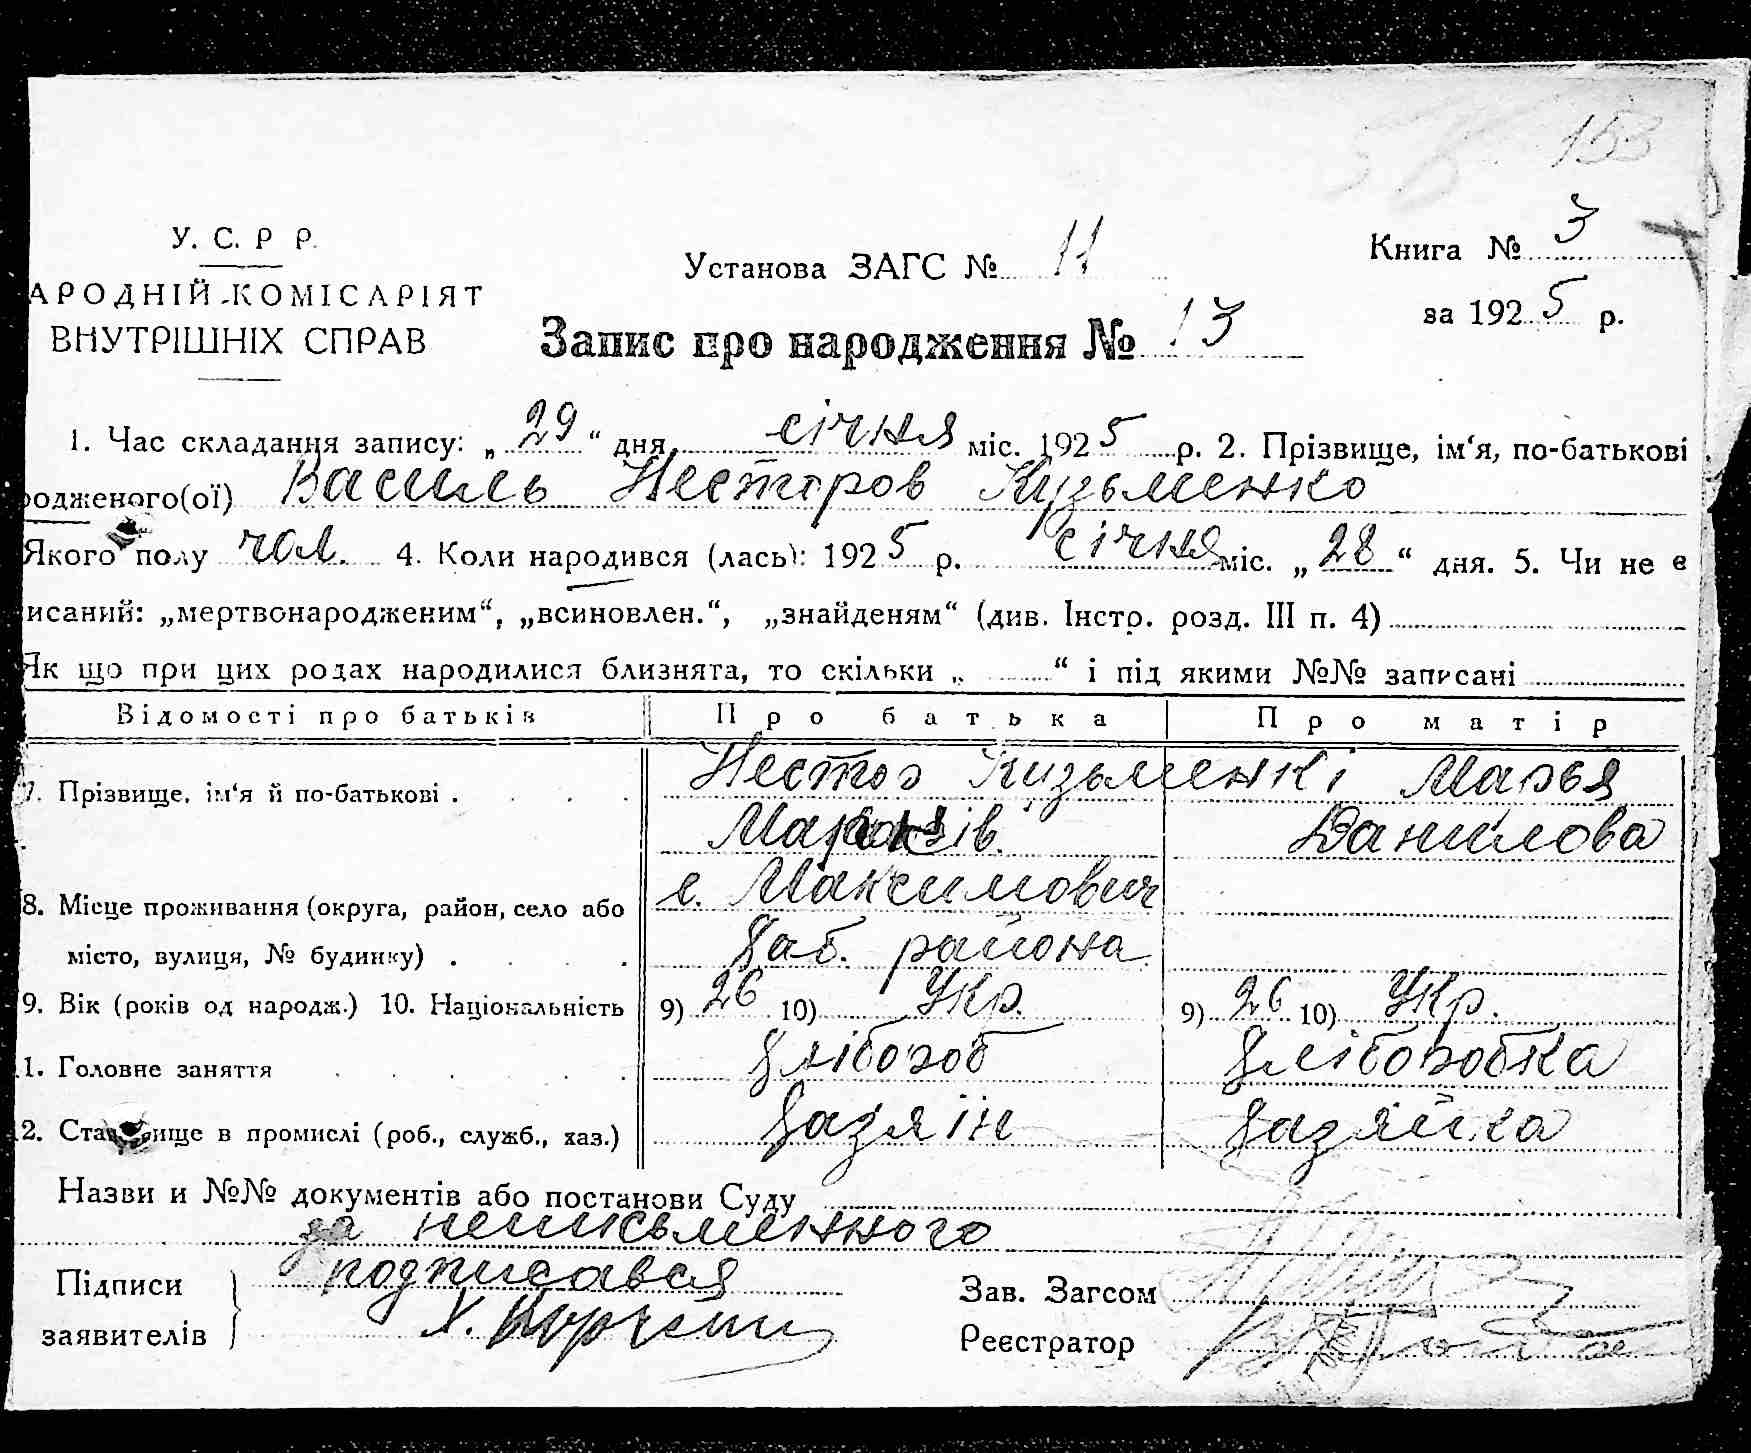 153
У. С. Р Р.
Установа ЗАГС № 11
Книга № 3
АРОДНІЙ КОМІСАРІЯТ
ВНУТРІШНІХ СПРАВ
за 1925 р.
Запис про народження № 13
1. Час складання запису: „29“ дня січня міс. 1925 р. 2. Прізвище, ім‘я, по-батькові
родженого(ої) Василь Несторов Кузьменко
Якого полу чол. 4. Коли народився (лась): 1925 р. січня міс. „28“ дня. 5. Чи не є
исаний: „мертвонародженим“, „всиновлен.“, „знайденям“ (див. Інстр. розд. III п. 4)
Як що при цих родах народилися близнята, то скільки „ “ і під якими №№ записані
Відомості про батьків Про батька Про матір
7. Прізвище, ім‘я й по-батькові . Нестор Кузьменкі Марья
Данилова
8. Місце проживання (округа, район, село або с. Максимович
місто, вулиця, № будинку) . Хаб. района
9. Вік (років од народж.) 10. Національність 9) 26 10) Укр. 9) 26 10) Укр.
1. Головне заняття Хлібороб Хліборобка
2. Становище в промислі (роб., служб., хаз.) Хазяїн Хазяйка
Назви и №№ документів або постанови Суду
за неписьменного
Підписи подписався
заявителів Х.
Зав. Загсом
Реєстратор